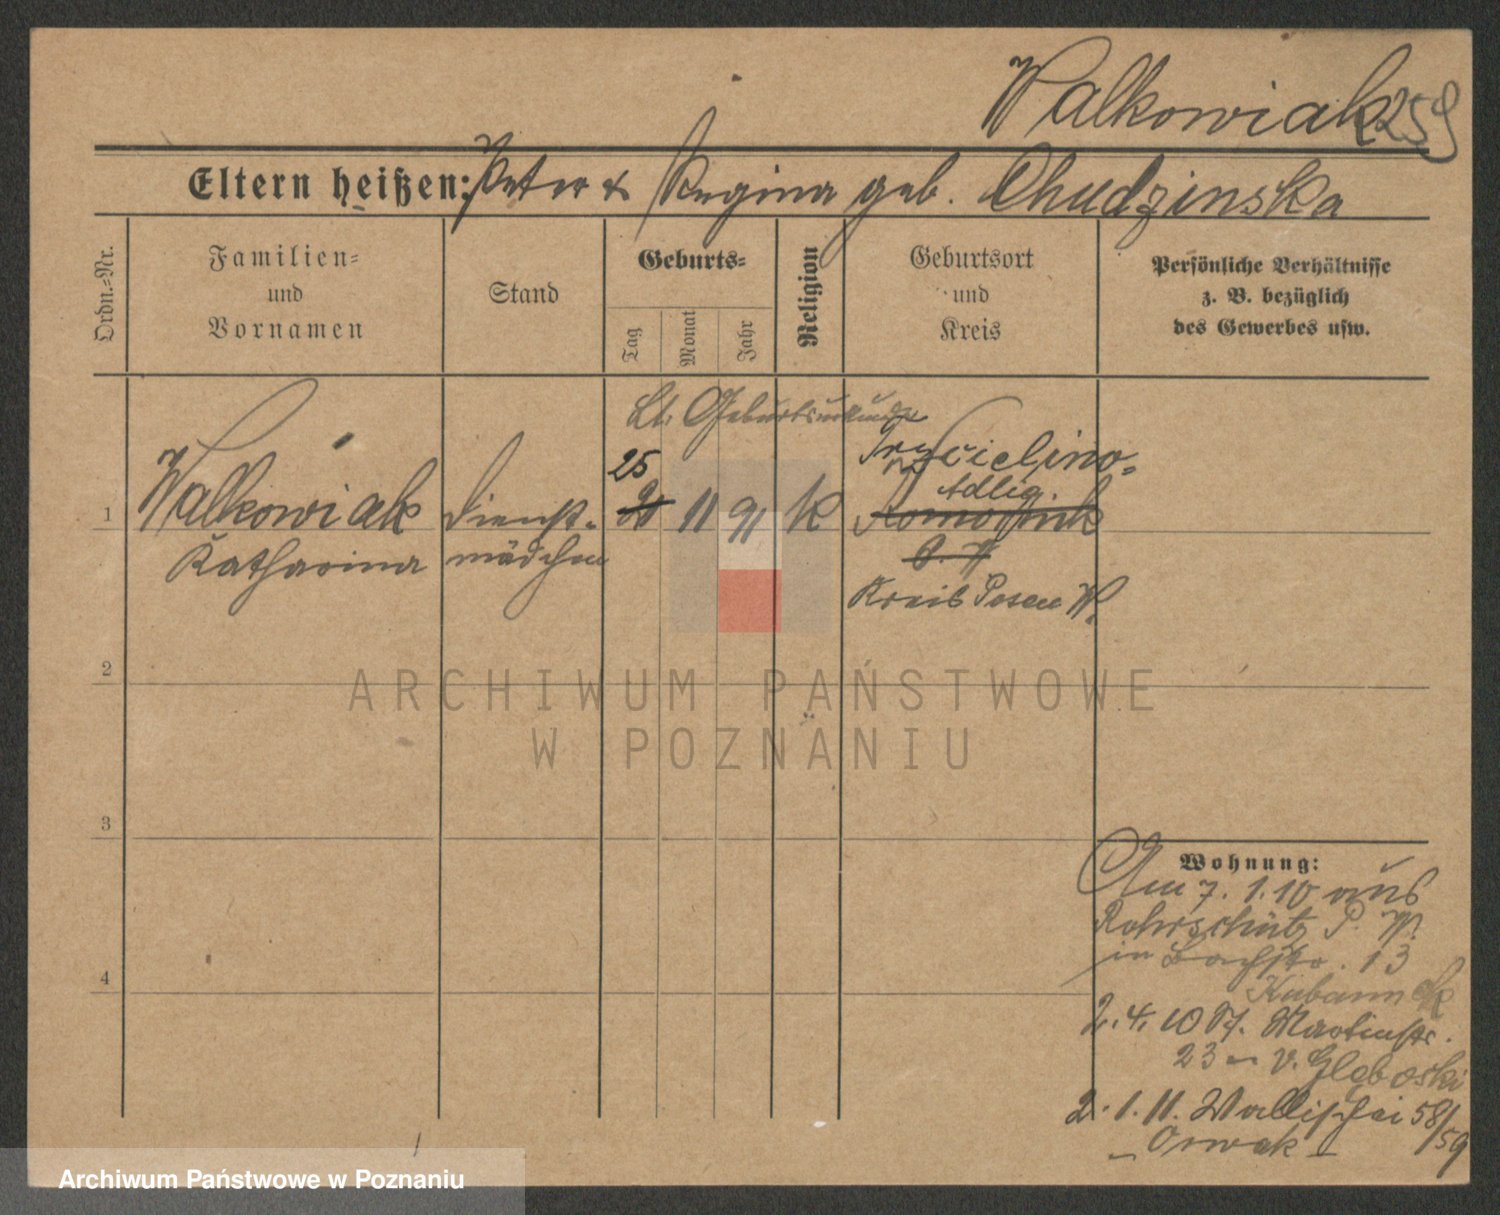 Walkowiak 259
Eltern heißen: Peter & Regina geb. Chudzinska
Ordn.-Nr.
Familien-
und
Vornamen
Stand
Geburts-
Tag
Monat
Jahr
Religion
Geburtsort
und
Kreis
Persönliche Verhältnisse
z. B. bezüglich
des Gewerbes usw.
Lt. Geburtsurkunde
1
Walkowiak
Katharina
Dienst-
mädchen
25
11
91
K
Adlig.
Kreis Posen W.
2
3
4
Wohnung:
Am 7. 1. 10 aus
Rohrschütz P. W.
in Bachstr. 13
2. 4. 10 Martinstr.
23 v. Gleboski
2. 1. 11. Wallischei 58/59
ARCHIWUM PAŃSTWOWE
W POZNANIU
Archiwum Państwowe w Poznaniu